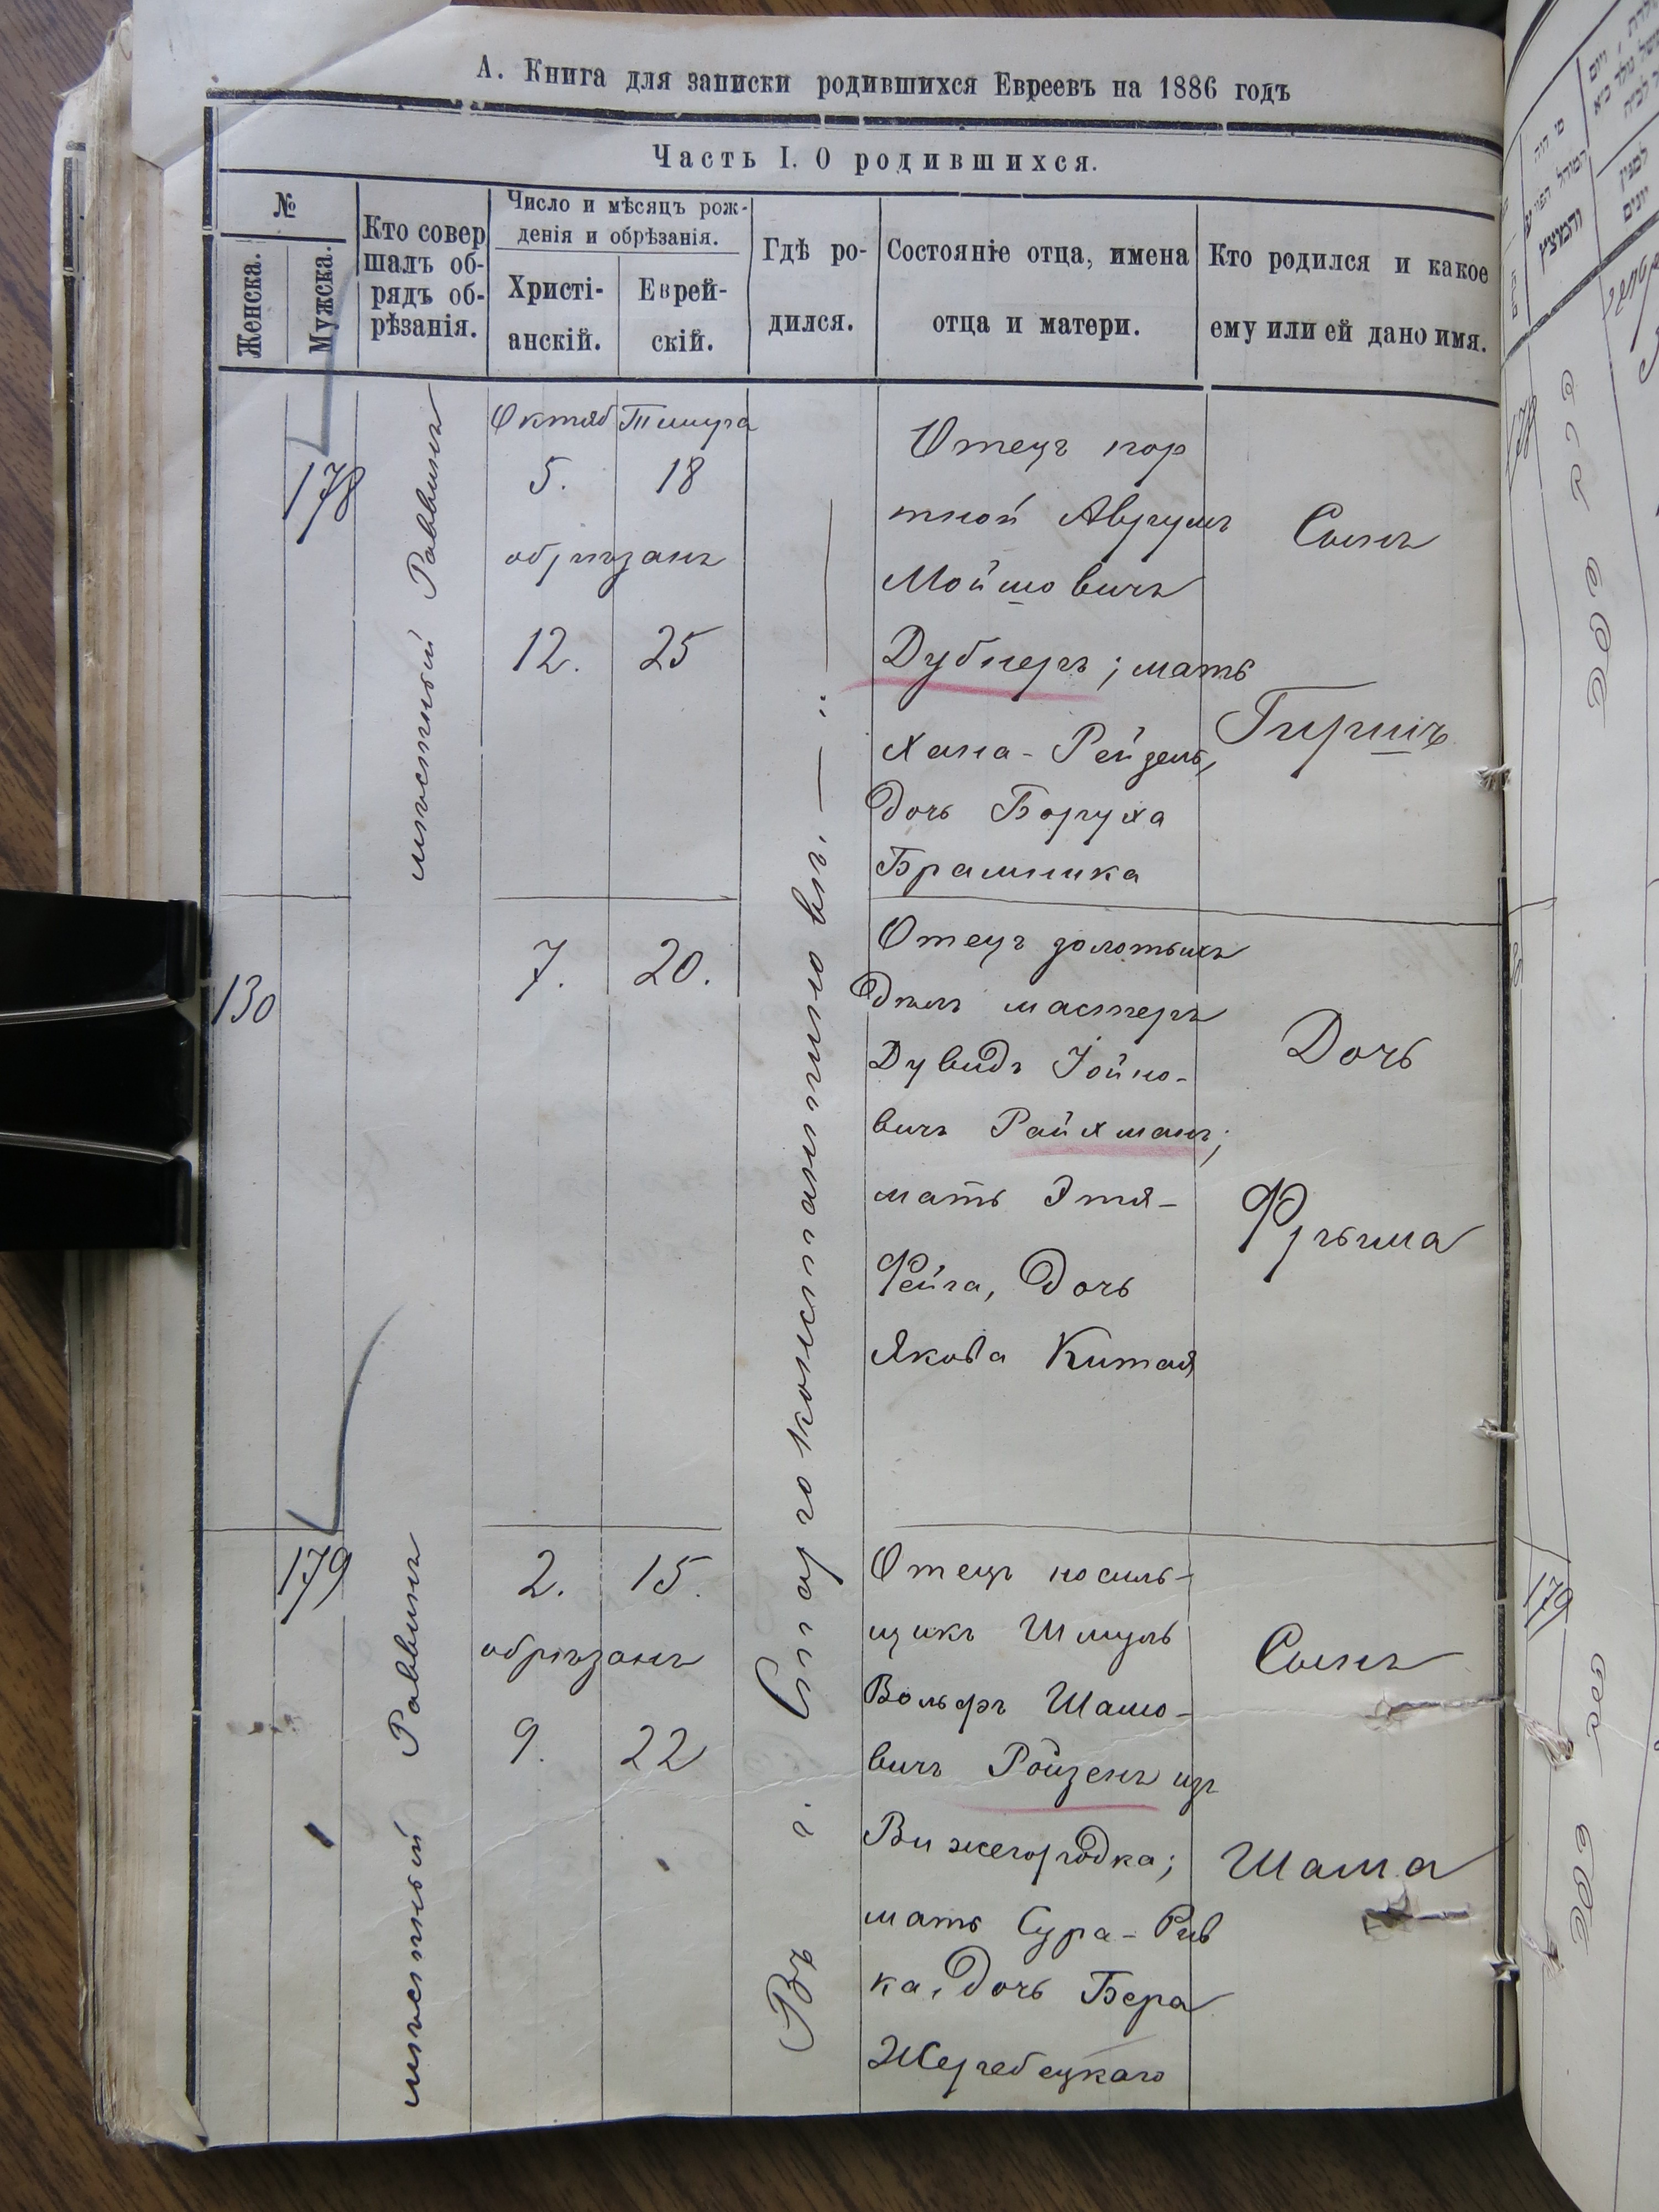 А. Книга для записки родившихся Евреевъ на 1886 годъ
Часть I. О родившихся.
№
Женска.
Мужска.
Кто совер
шалъ об-
рядъ об-
рѣзанія.
Число и мѣсяцъ рож-
денія и обрѣзанія.
Христі-
анскій.
Еврей-
скій.
Гдѣ ро-
дился.
Состояніе отца, имена
отца и матери.
Кто родился и какое
ему или ей дано имя.
178
мѣстный Раввинъ
Октяб
Тишра
5.
18
обрѣзанъ
12.
25
Въ г. Староконстантиновѣ. —
Отецъ пор
тной Аврумъ
Мойшовичъ
Дубнеръ; мать
Хана-Рейзель,
дочь Боруха
Брамника
Сынъ
Гиршъ
130
7.
20.
Отецъ золотыхъ
дѣлъ мастеръ
Дувидъ Іойно-
вичъ Райхманъ;
мать Этя-
Фейга, дочь
Якова Китая
Дочь
Фрыма
179
мѣстный Раввинъ
2.
15.
обрѣзанъ
9.
22
Отецъ носиль-
щикъ Шмуль
Вольфъ Шамо-
вичъ Ройзенъ изъ
Вижегородка;
мать Сура-Рив
ка, дочь Бера
Жеребецкаго
Сынъ
Шама
178
179